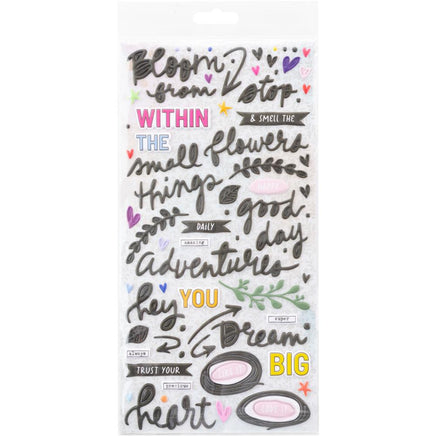 Bloom
from stop
WITHIN
& SMELL THE
THE
small flowers
things
HAPPY
good
DAILY
day
amazing
adventures
hey YOU
super
Dream
always
BIG
TRUST YOUR
precious
heart